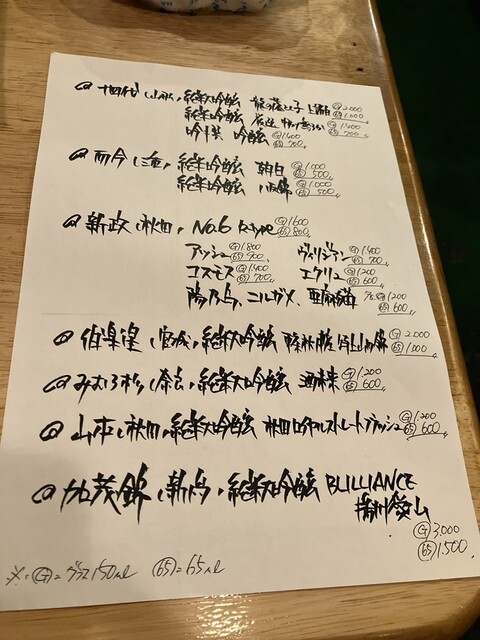 十四代 (山形) 純米大吟醸 龍の落とし子 上諸白 Ⓖ2,000 ㊿1,000
純米吟醸 Ⓖ1,400 (65)700
吟撰 吟醸 Ⓖ1,400 (65)700
而今 (三重) 純米吟醸 朝日 Ⓖ1,000 (65)500
純米吟醸 八反錦 Ⓖ1,000 (65)500
新政 (秋田) No.6 R-type Ⓖ1,600 (65)800
アッシュ Ⓖ1,800 (65)900 ヴィリジアン Ⓖ1,400 (65)700
コスモス Ⓖ1,400 (65)700 エクリュ Ⓖ1,200 (65)600
陽乃鳥、ニルガメ、亜麻猫 Ⓖ1,200 (65)600
伯楽星 (宮城) 純米大吟醸 Ⓖ2,000 (65)1,000
みむろ杉 (奈良) 純米大吟醸 Ⓖ1,200 (65)600
山本 (秋田) 純米大吟醸 秋田ロイヤルストレートフラッシュ Ⓖ1,200 (65)600
加茂錦 (新潟) 純米大吟醸 BLILLIANCE
播州愛山
Ⓖ3,000
(65)1,500
※・Ⓖ=グラス150ml (65)=65ml